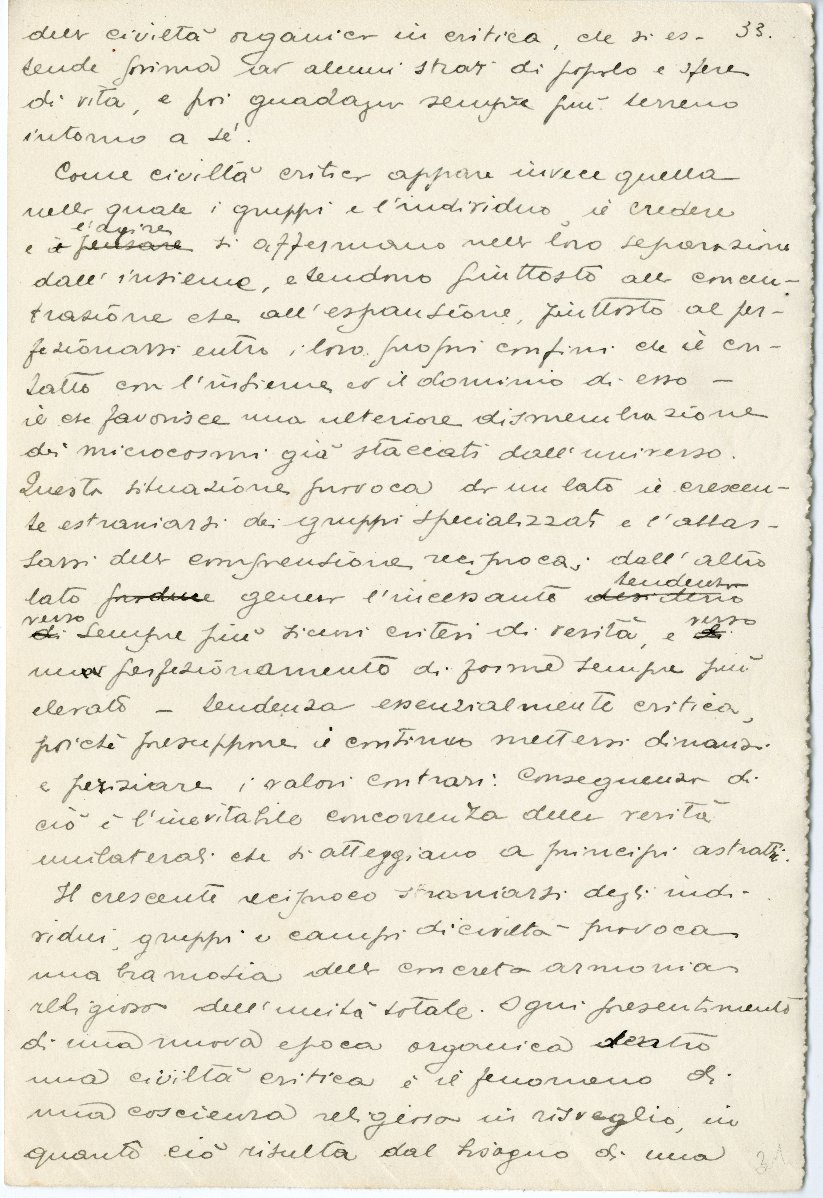 33.
della civiltà organica in critica, che si es-
tende prima ad alcuni strati di popolo e sfere
di vita, e poi guadagna sempre più terreno
intorno a sé.
Come civiltà critica appare invece quella
nella quale i gruppi e l'individuo, il credere
l'agire
e il pensare si affermano nella loro separazione
dall'insieme, e tendono piuttosto alla concen-
trazione che all'espansione, piuttosto al per-
fezionarsi entro i loro propri confini che il con-
tatto con l'insieme ed il dominio di esso –
il che favorisce una ulteriore dismembrazione
dei microcosmi già staccati dall'universo.
Questa situazione provoca da un lato il crescen-
te estraniarsi dei gruppi specializzati e l'abbas-
sarsi della comprensione reciproca; dall'altro
tendenza
lato produce genera l'incessante desiderio
verso verso
di sempre più sicuri criteri di verità, e di
una perfezionamento di forme sempre più
elevato – tendenza essenzialmente critica,
poiché presuppone il continuo mettersi dinanzi
e periziare i valori contrari. Conseguenza di
ciò è l'inevitabile concorrenza delle verità
unilaterali che si atteggiano a principi astratti.
Il crescente reciproco straniarsi degli indi-
vidui, gruppi e campi di civiltà provoca
una bramosia della concreta armonia
religiosa dell'unità totale. Ogni presentimento
di una nuova epoca organica dentro
una civiltà critica è il fenomeno di
una coscienza religiosa in risveglio, in
quanto ciò risulta dal bisogno di una
31